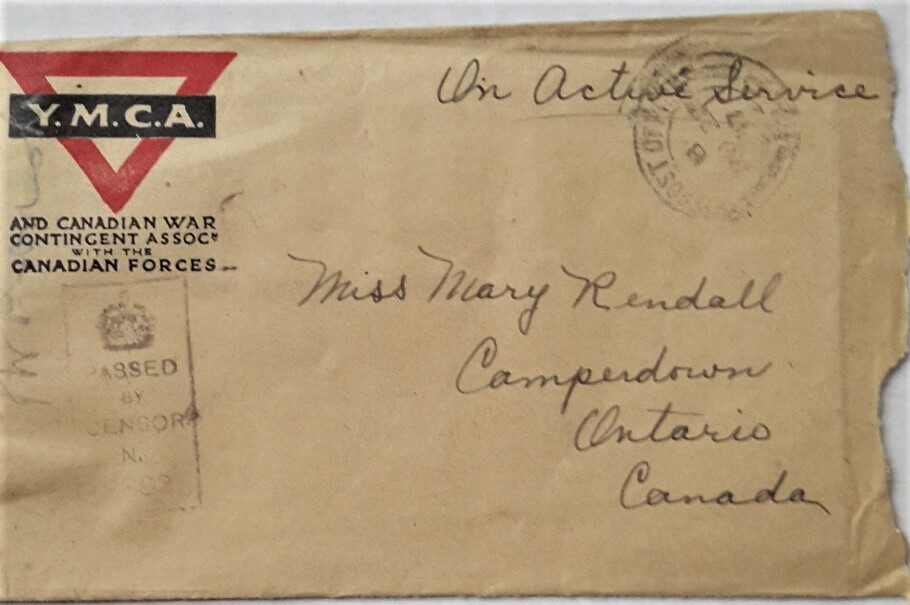 On Active Service
Y.M.C.A.
AND CANADIAN WAR
CONTINGENT ASSOCN
WITH THE
CANADIAN FORCES
POST OF
PASSED
BY
CENSOR
Miss Mary Rendall
Camperdown
Ontario
Canada